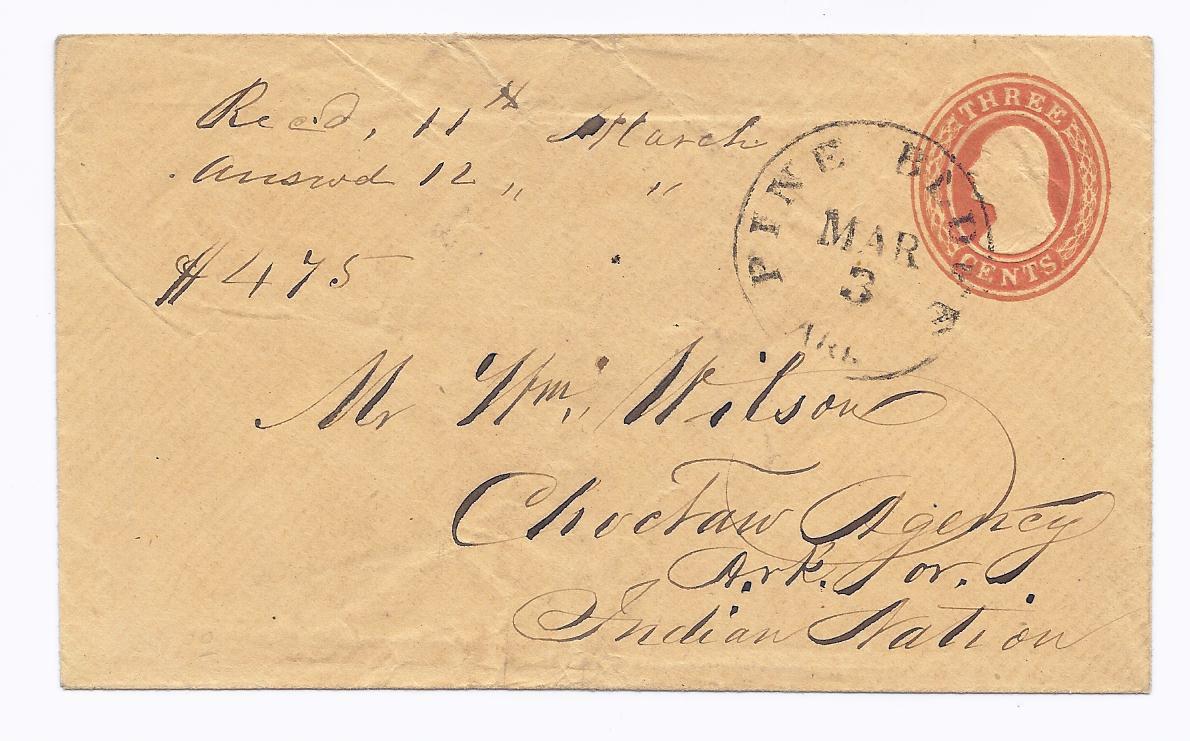 Recd, 11th March
Answd 12 " "
$475
THREE
CENTS
PINE
MAR
3
ARK.
Mr Wm,, Wilson
Choctaw Agency
Ark. or.
Indian Nation